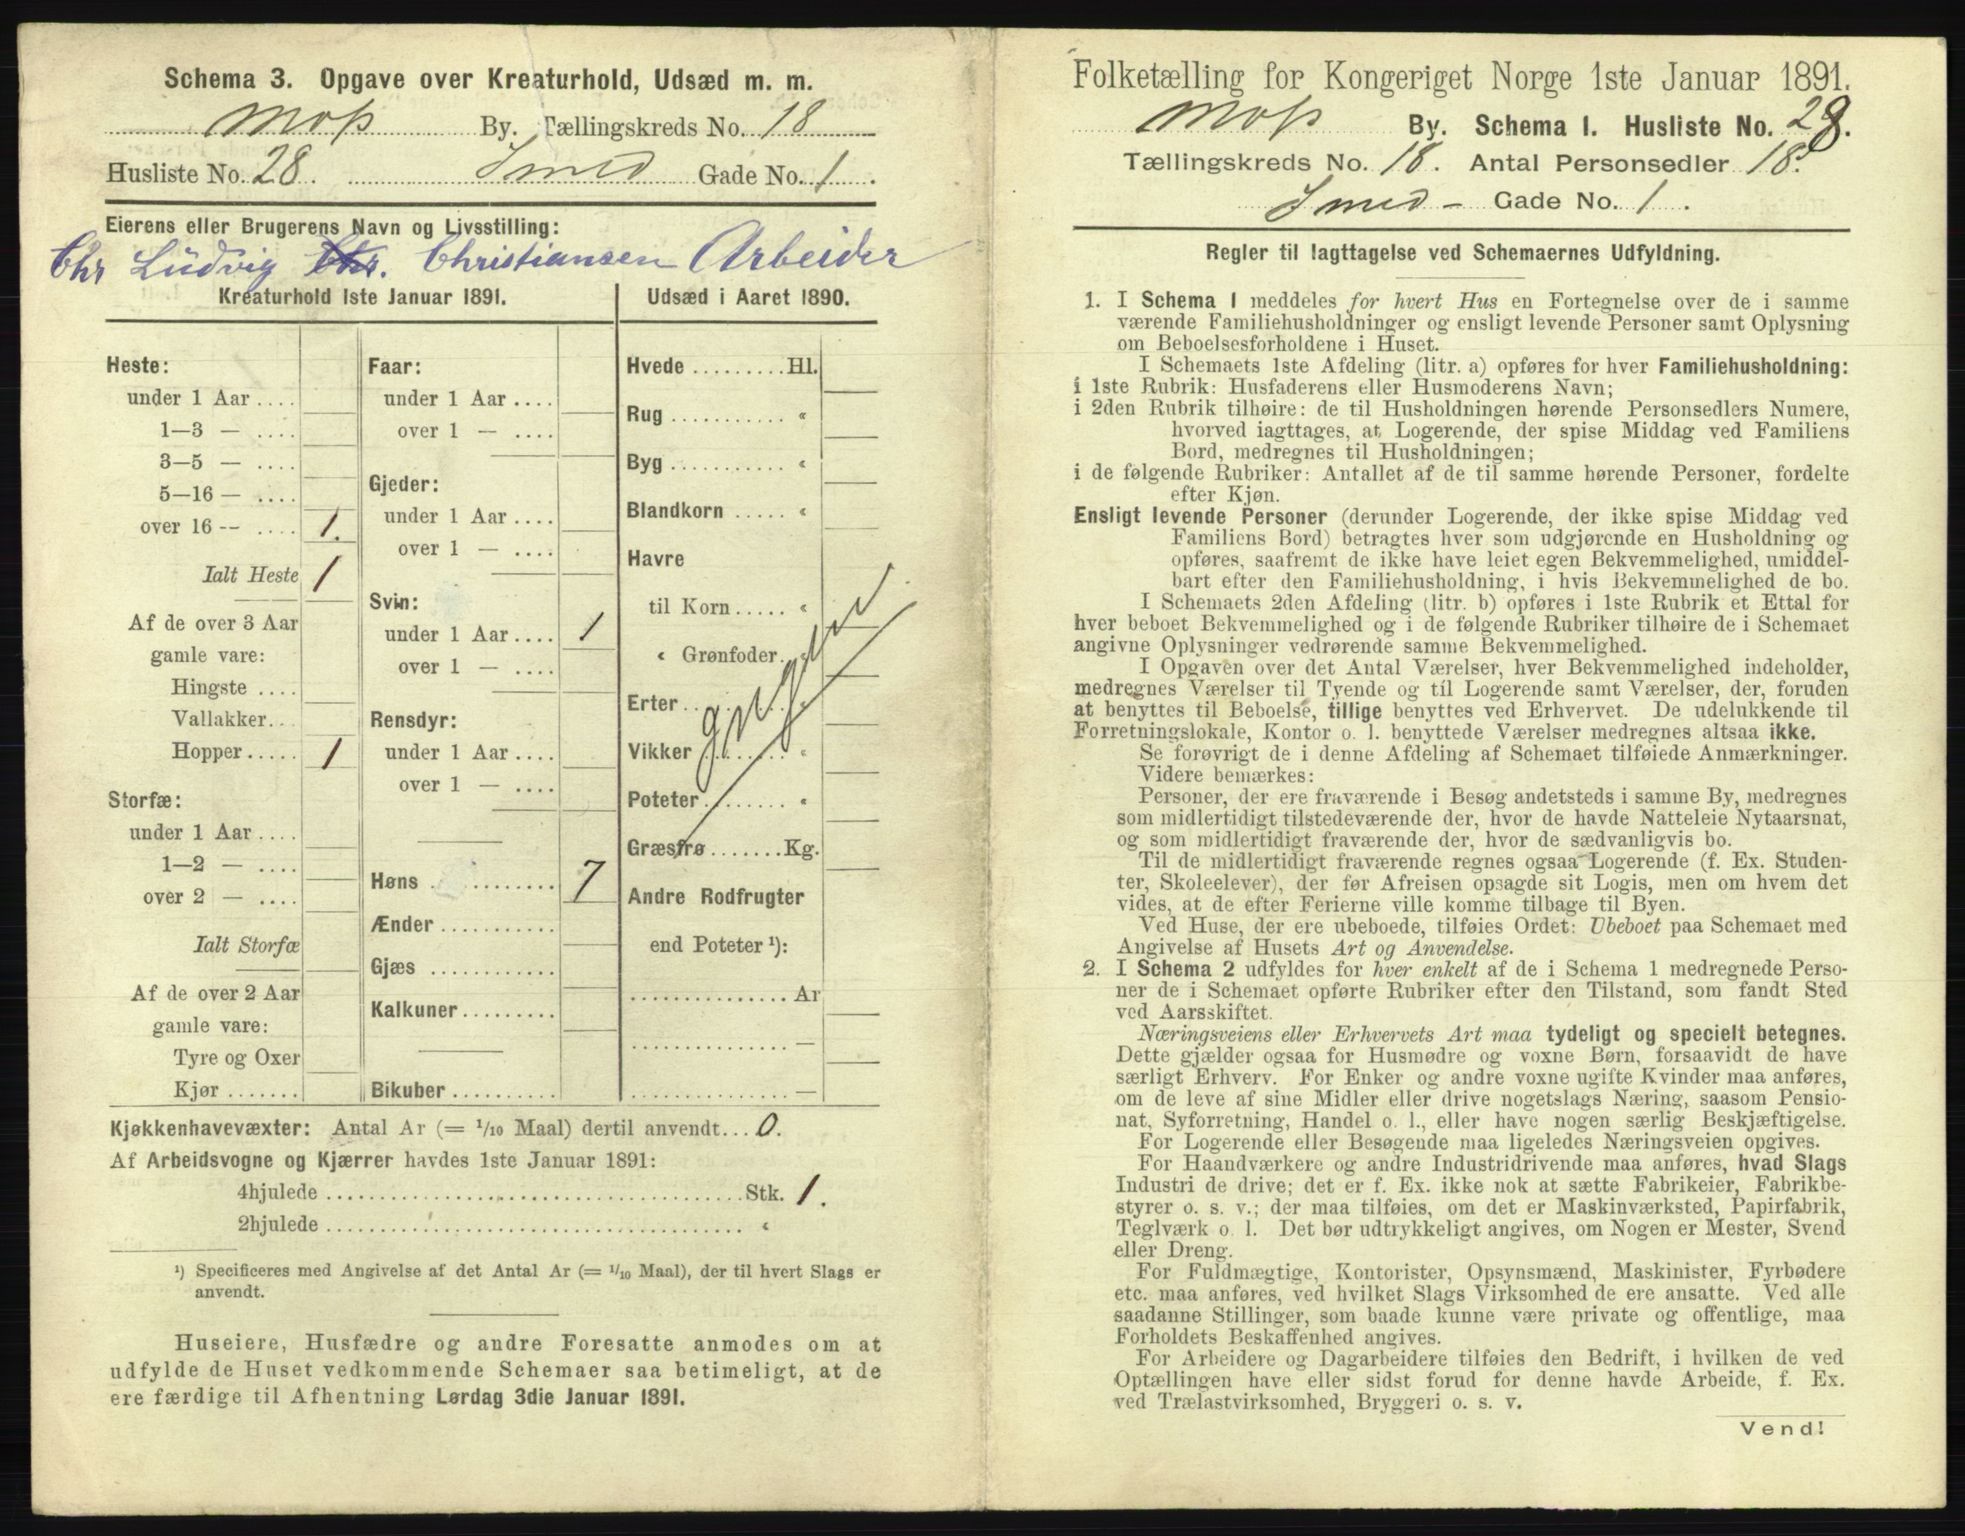 Schema 3. Opgave over Kreaturhold, Udsæd m. m.
Moss By. Tællingskreds No. 18
Husliste No. 28. Smed Gade No. 1.
Eierens eller Brugerens Navn og Livsstilling:
Chr Ludvig Chr. Christiansen Arbeider
Kreaturhold 1ste Januar 1891.
Heste:
under 1 Aar ....
1—3 — ....
3—5 — ....
5—16 — ....
over 16 -- .... 1.
Ialt Heste 1
Af de over 3 Aar
gamle vare:
Hingste ....
Vallakker...
Hopper..... 1
Storfæ:
under 1 Aar ....
1—2 — ....
over 2 — ....
Ialt Storfæ
Af de over 2 Aar
gamle vare:
Tyre og Oxer
Kjør .......
Faar:
under 1 Aar ....
over 1 — ....
Gjeder:
under 1 Aar ....
over 1 — ....
Svin:
under 1 Aar .... 1
over 1 — ....
Rensdyr:
under 1 Aar ....
over 1 — ....
Høns .......... 7
Ænder ...........
Gjæs ............
Kalkuner.........
Bikuber ..........
Udsæd i Aaret 1890.
Hvede .........Hl.
Rug ........... «
Byg ........... «
Blandkorn ..... «
Havre
til Korn ..... «
« Grønfoder.. «
Erter.......... «
Vikker ........ «
Poteter........ «
Græsfrø.......Kg.
Andre Rodfrugter
end Poteter ¹):
............... Ar
............... —
............... —
Kjøkkenhavevæxter: Antal Ar (= 1/10 Maal) dertil anvendt... 0.
Af Arbeidsvogne og Kjærrer havdes 1ste Januar 1891:
4hjulede ........................................Stk. 1.
2hjulede ........................................ «
¹) Specificeres med Angivelse af det Antal Ar (= 1/10 Maal), der til hvert Slags er
anvendt.
Huseiere, Husfædre og andre Foresatte anmodes om at
udfylde de Huset vedkommende Schemaer saa betimeligt, at de
ere færdige til Afhentning Lørdag 3die Januar 1891.
Folketælling for Kongeriget Norge 1ste Januar 1891.
Moss By. Schema I. Husliste No. 28.
Tællingskreds No. 18. Antal Personsedler 18.
Smed- Gade No. 1.
Regler til Iagttagelse ved Schemaernes Udfyldning.
1. I Schema I meddeles for hvert Hus en Fortegnelse over de i samme
værende Familiehusholdninger og ensligt levende Personer samt Oplysning
om Beboelsesforholdene i Huset.
I Schemaets 1ste Afdeling (litr. a) opføres for hver Familiehusholdning:
i 1ste Rubrik: Husfaderens eller Husmoderens Navn;
i 2den Rubrik tilhøire: de til Husholdningen hørende Personsedlers Numere,
hvorved iagttages, at Logerende, der spise Middag ved Familiens
Bord, medregnes til Husholdningen;
i de følgende Rubriker: Antallet af de til samme hørende Personer, fordelte
efter Kjøn.
Ensligt levende Personer (derunder Logerende, der ikke spise Middag ved
Familiens Bord) betragtes hver som udgjørende en Husholdning og
opføres, saafremt de ikke have leiet egen Bekvemmelighed, umiddel-
bart efter den Familiehusholdning, i hvis Bekvemmelighed de bo.
I Schemaets 2den Afdeling (litr. b) opføres i 1ste Rubrik et Ettal for
hver beboet Bekvemmelighed og i de følgende Rubriker tilhøire de i Schemaet
angivne Oplysninger vedrørende samme Bekvemmelighed.
I Opgaven over det Antal Værelser, hver Bekvemmelighed indeholder,
medregnes Værelser til Tyende og til Logerende samt Værelser, der, foruden
at benyttes til Beboelse, tillige benyttes ved Erhvervet. De udelukkende til
Forretningslokale, Kontor o. l. benyttede Værelser medregnes altsaa ikke.
Se forøvrigt de i denne Afdeling af Schemaet tilføiede Anmærkninger.
Videre bemærkes:
Personer, der ere fraværende i Besøg andetsteds i samme By, medregnes
som midlertidigt tilstedeværende der, hvor de havde Natteleie Nytaarsnat,
og som midlertidigt fraværende der, hvor de sædvanligvis bo.
Til de midlertidigt fraværende regnes ogsaa Logerende (f. Ex. Studen-
ter, Skoleelever), der før Afreisen opsagde sit Logis, men om hvem det
vides, at de efter Ferierne ville komme tilbage til Byen.
Ved Huse, der ere ubeboede, tilføies Ordet: Ubeboet paa Schemaet med
Angivelse af Husets Art og Anvendelse.
2. I Schema 2 udfyldes for hver enkelt af de i Schema 1 medregnede Perso-
ner de i Schemaet opførte Rubriker efter den Tilstand, som fandt Sted
ved Aarsskiftet.
Næringsveiens eller Erhvervets Art maa tydeligt og specielt betegnes.
Dette gjælder ogsaa for Husmødre og voxne Børn, forsaavidt de have
særligt Erhverv. For Enker og andre voxne ugifte Kvinder maa anføres,
om de leve af sine Midler eller drive nogetslags Næring, saasom Pensio-
nat, Syforretning, Handel o. l., eller have nogen særlig Beskjæftigelse.
For Logerende eller Besøgende maa ligeledes Næringsveien opgives.
For Haandværkere og andre Industridrivende maa anføres, hvad Slags
Industri de drive; det er f. Ex. ikke nok at sætte Fabrikeier, Fabrikbe-
styrer o. s. v.; der maa tilføies, om det er Maskinværksted, Papirfabrik,
Teglværk o. l. Det bør udtrykkeligt angives, om Nogen er Mester, Svend
eller Dreng.
For Fuldmægtige, Kontorister, Opsynsmænd, Maskinister, Fyrbødere
etc. maa anføres, ved hvilket Slags Virksomhed de ere ansatte. Ved alle
saadanne Stillinger, som baade kunne være private og offentlige, maa
Forholdets Beskaffenhed angives.
For Arbeidere og Dagarbeidere tilføies den Bedrift, i hvilken de ved
Optællingen have eller sidst forud for denne havde Arbeide, f. Ex.
ved Trælastvirksomhed, Bryggeri o. s. v.
Vend!